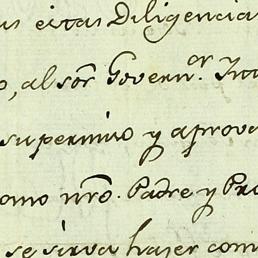 us estas Diligencia
o, al sōr Governⁿ.ᵒʳ Int
supermiso y aprova
como nrō. Padre y Pro
se sirva hazer com